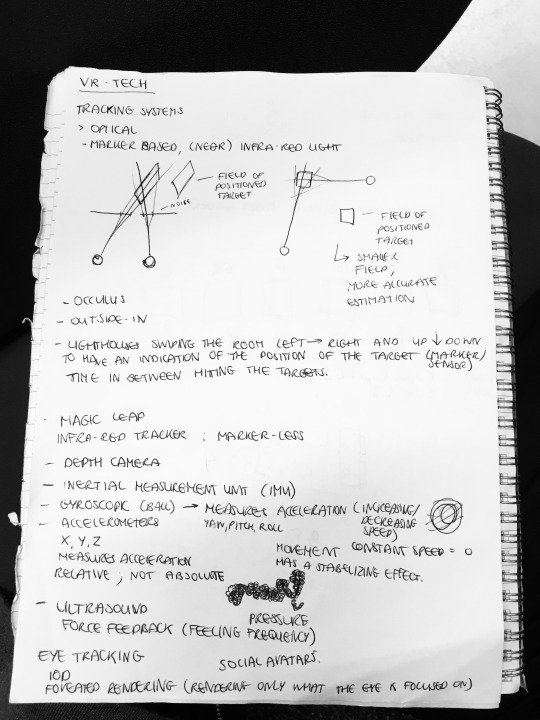 VR-TECH
TRACKING SYSTEMS
> OPTICAL
- MARKER BASED, (NEAR) INFRA-RED LIGHT
- FIELD OF
POSITIONED
TARGET
- NOISE
- FIELD OF
POSITIONED
TARGET
SMALLER
FIELD,
MORE ACCURATE
ESTIMATION
- OCCULUS
- OUTSIDE-IN
- LIGHTHOUSES SWIPING THE ROOM LEFT → RIGHT AND UP ↓ DOWN
TO HAVE AN INDICATION OF THE POSITION OF THE TARGET (MARKER/
SENSOR)
TIME IN BETWEEN HITTING THE TARGETS.
- MAGIC LEAP
INFRA-RED TRACKER : MARKER-LESS
- DEPTH CAMERA
- INERTIAL MEASUREMENT UNIT (IMU)
- GYROSCOPIC (BALL) → MEASURES ACCELERATION (INCREASING/
DECREASING
SPEED)
- ACCELEROMETERS YAW, PITCH, ROLL
X, Y, Z
MOVEMENT CONSTANT SPEED = 0
MEASURES ACCELERATION HAS A STABELIZING EFFECT.
RELATIVE, NOT ABSOLUTE
- ULTRASOUND PRESSURE
FORCE FEEDBACK (FEELING FREQUENCY)
EYE TRACKING SOCIAL AVATARS.
IOD
FOVEATED RENDERING (RENDERING ONLY WHAT THE EYE IS FOCUSED ON)